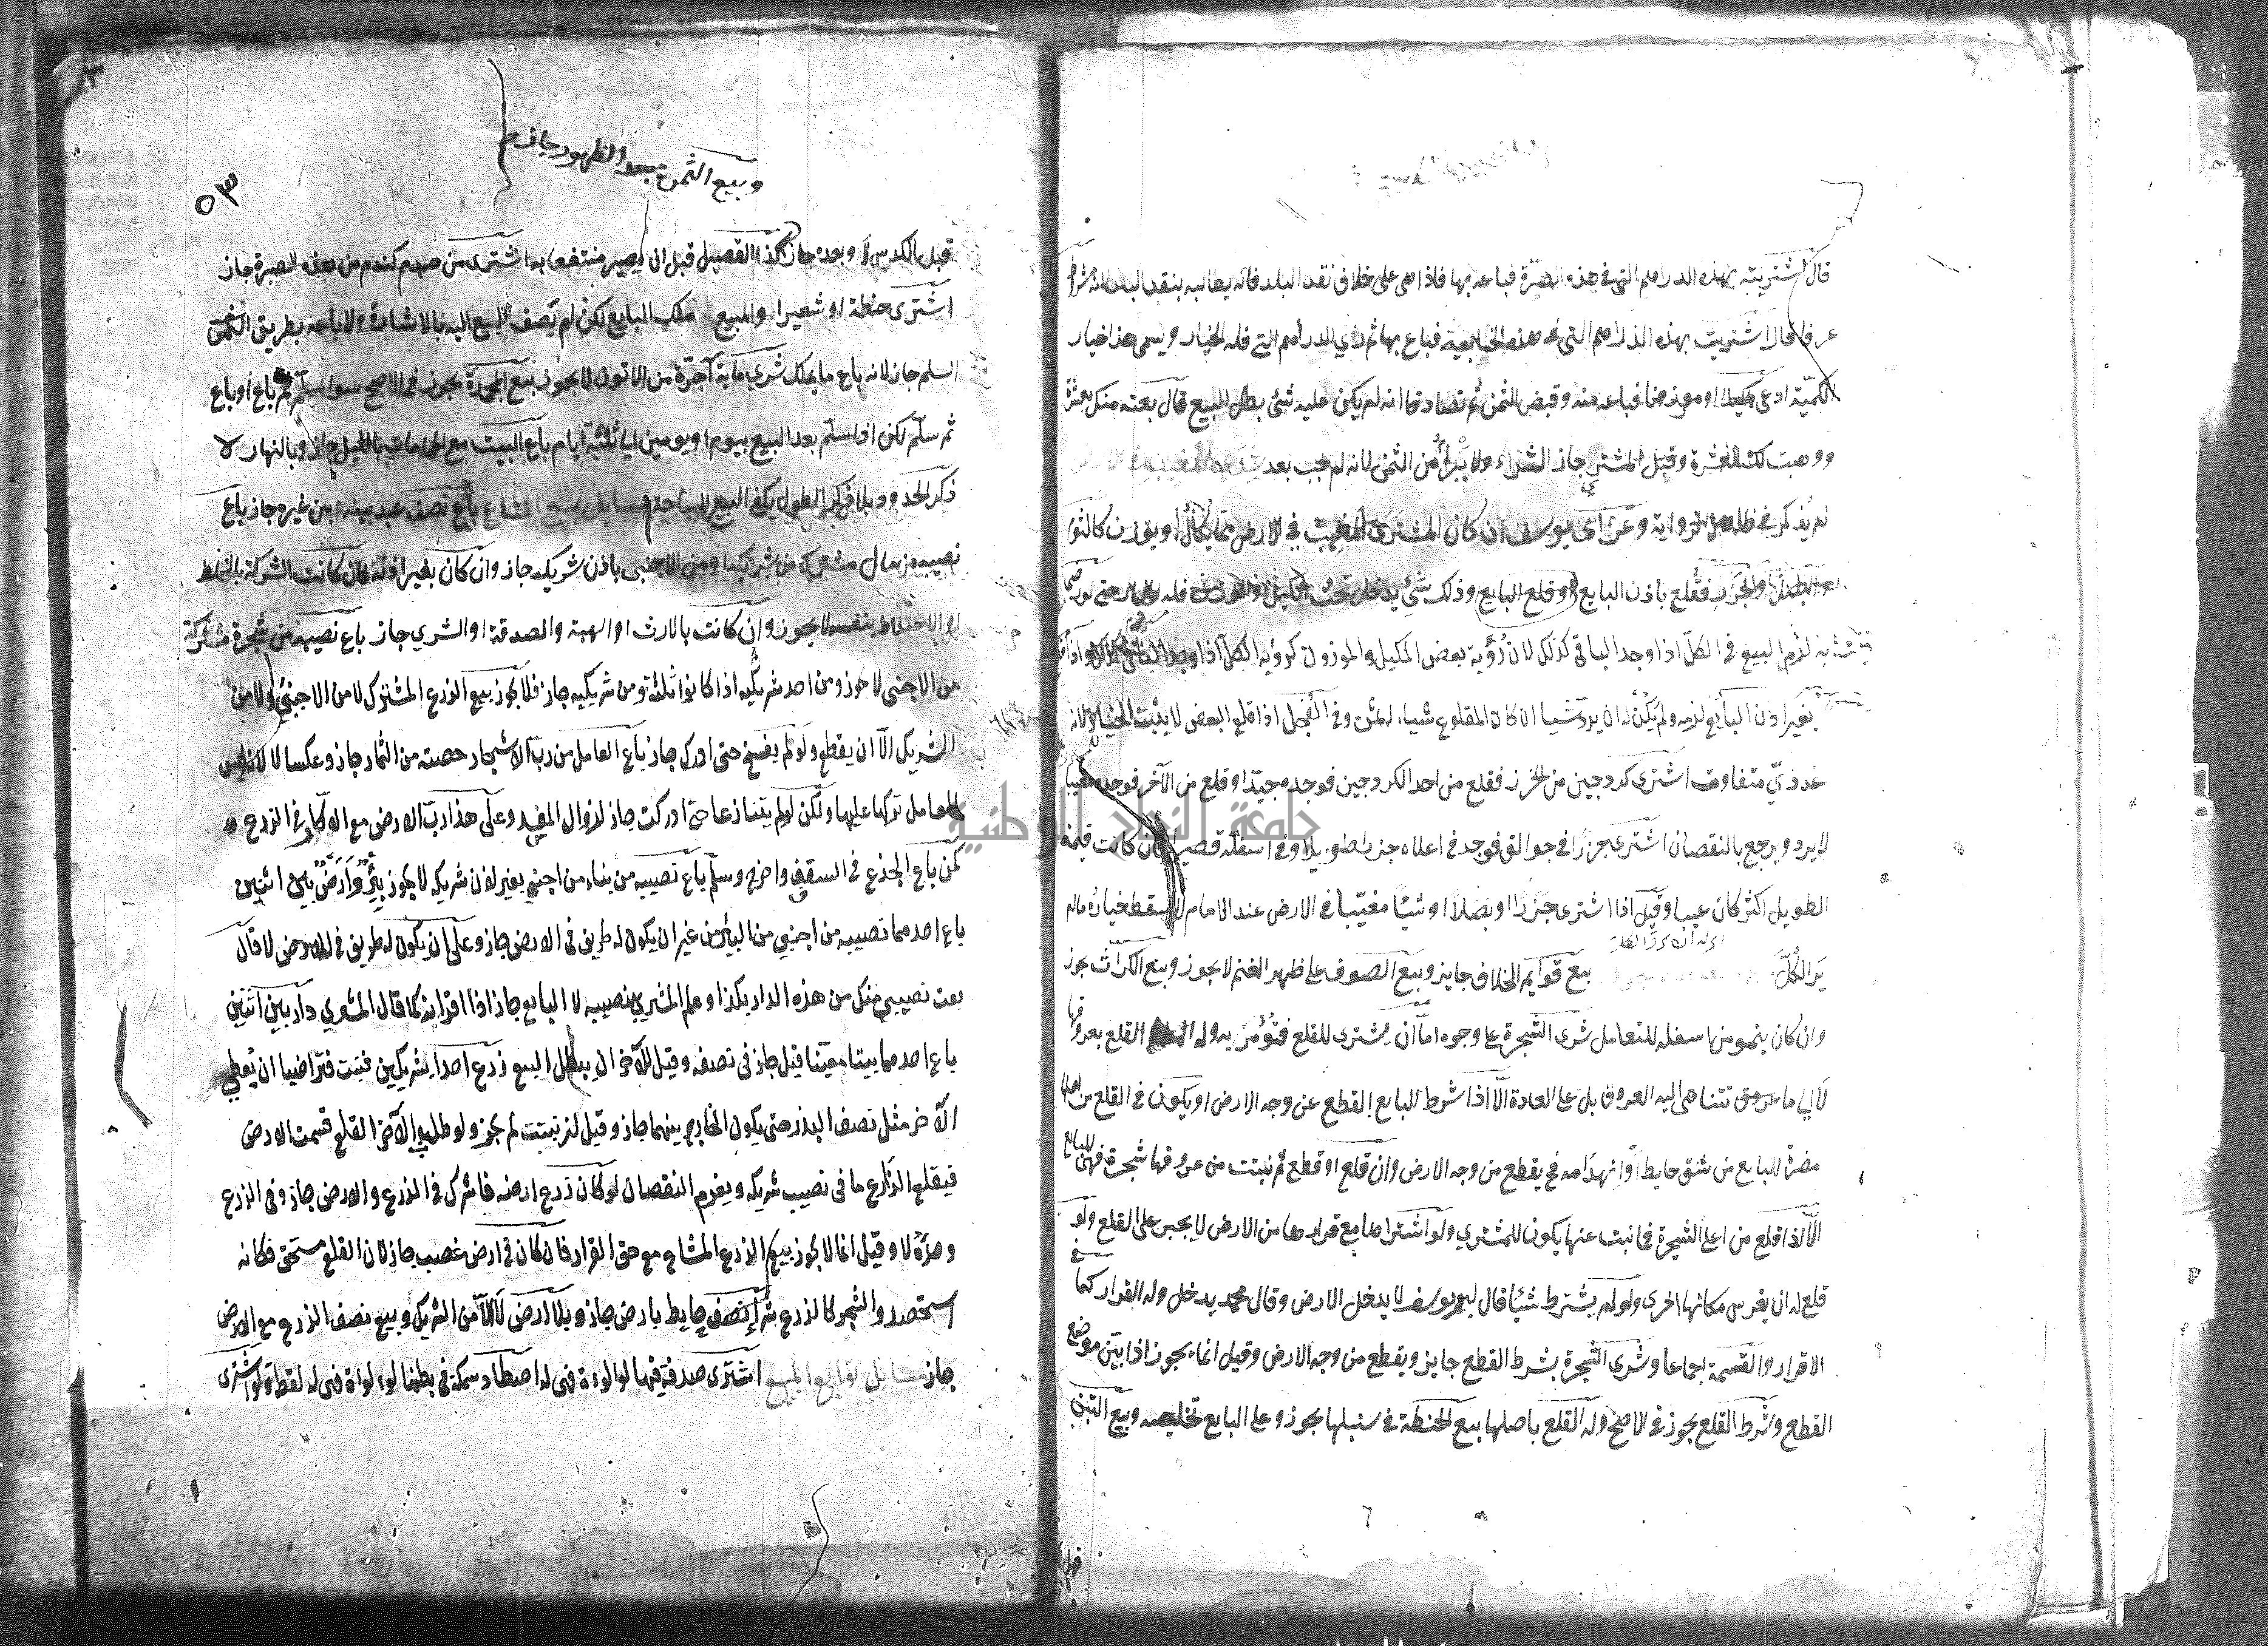 قال اشتريته بهذه الدراهم التي في هذه الصرة فباعه بها فاذا هي على خلاف نقد البلد فانه يطالبه بنقد البلد لانه شرط
عرفا قال اشتريت بهذه الدراهم التي في هذه الخابية فباع بها ثم راي الدراهم التي فله الخيار ويسمى هذا خيار
الكمية ادعى مكيلا او موزونا فباعه منه وقبض الثمن ثم تصادقا انه لم يكن عليه شئ بطل البيع قال بعته منك بعشرة
ووهبت لك العشرة وقبل المشتري جاز الشراء ولا يبرأ من الثمن لانه لم يجب بعد
لم يذكر في ظاهر الرواية وعن ابي يوسف ان كان المشترى المغيب في الارض مما يكال او يوزن كالثوم
والبصل والجزر فقلع باذن البايع او قلع البايع وذلك شئ يدخل تحت الكيل او الوزن فله الخيار حتى لو رضي
به لزم البيع في الكل اذا وجد الباقي كذلك لان رؤية بعض المكيل والموزون كرؤية الكل اذا وجد الباقي كذلك واذا
بغير اذن البايع لزمه ولم يكن له ان يرد شيا ان كان المقلوع شيا له ثمن وفي الفجل اذا قلع البعض لا يثبت الخيار لانه
عددي متفاوت اشترى كردجين من الجزر فقلع من احد الكردجين فوجده جيدا وقلع من الآخر فوجده معيبا
لا يرد ويرجع بالنقصان اشترى جزرا في جوالق فوجد في اعلاه جزرا طويلا وفي اسفله قصيرا فان كانت قيمة
الطويل اكثر كان عيبا وقيل اذا اشترى جزرا او بصلا او شيئا مغيبا في الارض عند الامام لا يسقط خياره ما لم
ير الكل بيع قوايم الخلاف جايز وبيع الصوف على ظهر الغنم لا يجوز وبيع الكراث يجوز
وان كان ينمو من اسفله للتعامل شرى الشجرة على وجوه اما ان يشترى للقلع فيؤمر به وله القلع بعروقها
لا الي ما عروق تتناهى اليه العروق بل على العادة الا اذا شرط البايع القطع عن وجه الارض او يكون في القلع من اصلها
مضرة للبايع من شق حايط او انهدامه فيقطع من وجه الارض وان قلع او قطع ثم نبتت من عروقها شجرة فهي للبايع
الا اذا قلع من اعلى الشجرة فما نبت عنها يكون للمشتري ولو اشتراها مع قرارها من الارض لا يجبر على القلع ولو
قلع له ان يغرس مكانها اخرى ولو لم يشترط شيئا قال ابو يوسف لا يدخل الارض وقال محمد يدخل وله القرار كما في
الاقرار والقسمة اجماعا وشرى الشجرة بشرط القطع جايز ويقطع من وجه الارض وقيل انما يجوز اذا بين موضع
القطع وشرط القلع يجوز في الاصح وله القلع باصلها بيع الحنطة في سنبلها يجوز وعلى البايع تخليصه وبيع التبن
وبيع الثمن بعد الظهور جايز
٥٣
قبل الكدس لا وبعده جاز كذا القصيل قبل ان يصير منتفعا به اشترى من صرم كندم من هذه الصبرة جاز
اشترى حنطة او شعيرا والمبيع ملك البايع لكن لم يضف البيع اليه بالاشارة ولا باعه بطريق
السلم جاز لانه باع ما يملك شرى ماية آجرة من الاتون لا يجوز بيع الجمدة يجوز في الاصح سوا سلم ثم باع او باع
ثم سلم لكن اذا سلم بعد البيع بيوم او يومين الى ثلثة ايام باع البيت مع الحمامات بالليل جاز وبالنهار لا
ذكر الحدود بلا ذكر الطول يكفي البيع مسايل بيع المشاع باع نصف عبد بينه وبين غيره جاز باع
نصيبه من مال مشترك من شريكه او من الاجنبي باذن شريكه جاز وان كان بغير اذنه فان كانت الشركة بالخلط
او الاختلاط بنفسه لا يجوز وان كانت بالارث او الهبة والصدقة او الشري جاز باع نصيبه من شجرة مشتركة
من الاجنبي لا يجوز ومن احد شريكيه اذا كانوا ثلثة ومن شريكيه جاز فلا يجوز بيع الزرع المشترك لا من الاجنبي ولا من
الشريك الا ان يقطع ولو لم يفسخ حتى ادرك جاز باع العامل من رب الاشجار حصته من الثمار جاز وعكسا لا لان
للعامل تركها عليها ولكن لو لم يتنازعا حتى ادركت جاز لزوال المفسد وعلى هذا رب الارض مع الاكار في الزرع
كمن باع الجذع في السقف واخرج وسلم باع نصيبه من بناء من اجنبي بغير اذن شريكه لا يجوز بئر وارض بين اثنين
باع احدهما نصيبه من اجنبي من البئر من غير ان يكون له طريق في الارض جاز وعلى ان يكون له طريق في الارض لا قال
بعت نصيبي منك من هذه الدار بكذا وعلم المشتري بنصيبه لا البايع جاز اذا اقر انه كما قال المشتري دار بين اثنين
باع احدهما بيتا معينا قيل جاز في نصفه وقيل للآخر ان يبطل البيع زرع احد الشريكين فنبت فتراضيا ان يعطي
الآخر مثل نصف البذر حتى يكون الخارج بينهما جاز وقيل لم تنبت لم يجز ولو طلب الآخر القلع قسمت الارض
فيقلع الزارع ما في نصيب شريكه ويغرم النقصان لو كان زرع ارضه فاشرك في الزرع والارض جاز وفي الزرع
وحده لا وقيل انما لا يجوز بيع الزرع المشاع مع حق القرار فان كان في ارض غصب جاز لان القلع مستحق فكانه
استحصد والشجر كالزرع شرى نصف حايط بارض جاز وبلا ارض لا الا من الشريك وبيع نصف الزرع مع الارض
جاز مسايل توابع المبيع اشترى صدفة فيها لؤلؤة فهي له اصطاد سمكة في بطنها لؤلؤة فهي له لقطة ولو اشترى